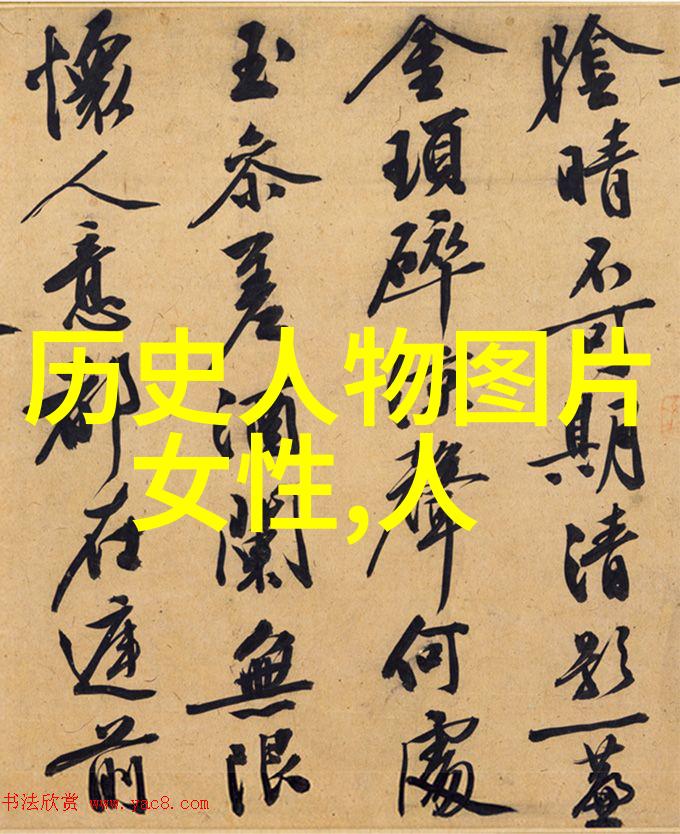 陰晴不可期清影一
金瑣碎聲何處
玉參差酒闌無限
懷人意都在前
历史人物图片
女性,人
书法欣赏 www.yac8.com